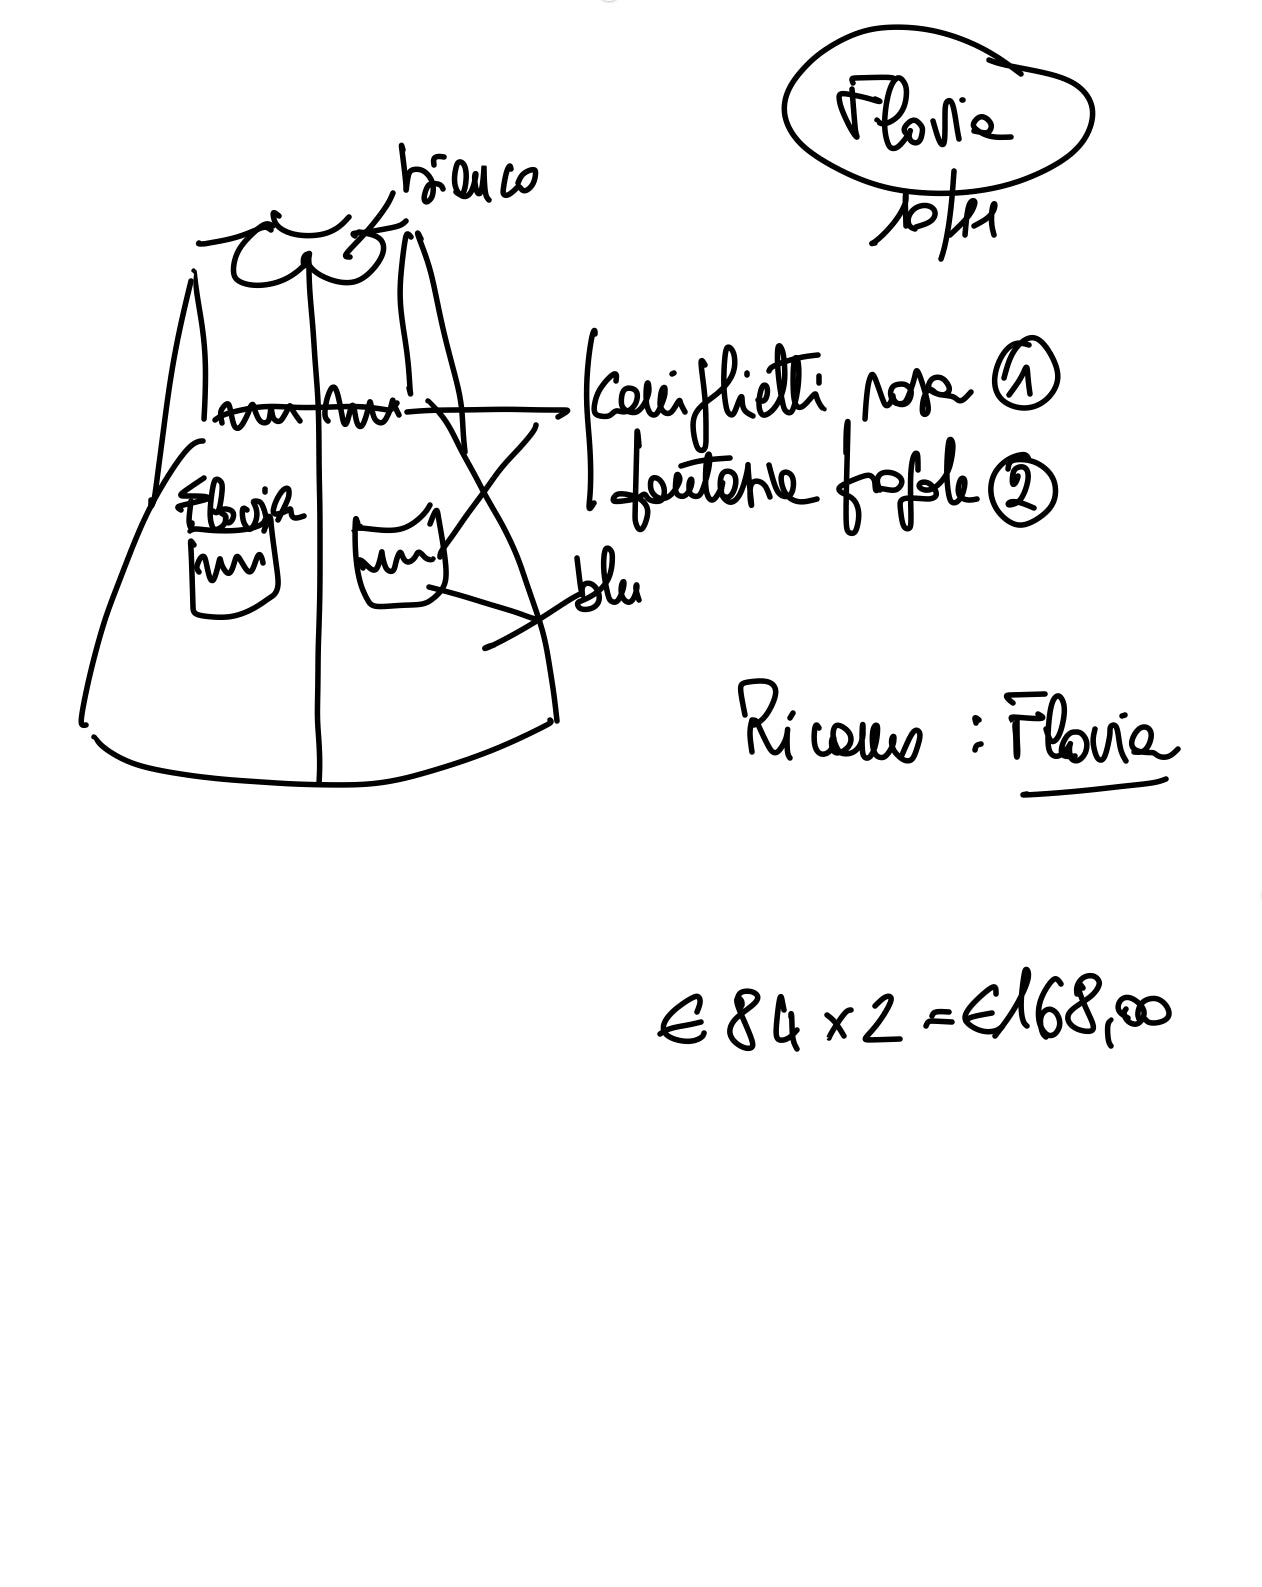 Flavia
10/11
bianco
coniglietti rosa 1
fantasia fragole 2
Flavia
blu
Ricamo : Flavia
€ 84 x 2 = € 168,00